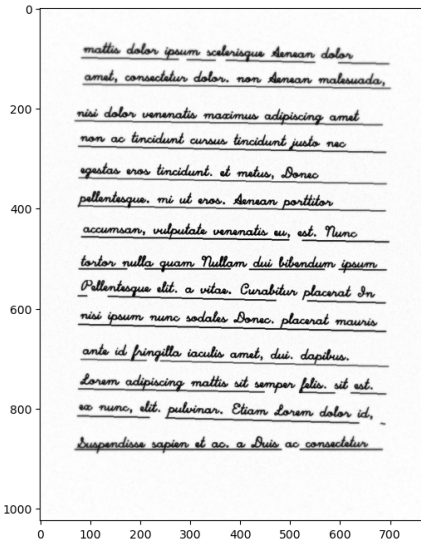 mattis dolor ipsum scelerisque Aenean dolor
amet, consectetur dolor. non Aenean malesuada,
nisi dolor venenatis maximus adipiscing amet
non ac tincidunt cursus tincidunt justo nec
egestas eros tincidunt. et metus, Donec
pellentesque. mi ut eros. Aenean porttitor
accumsan, vulputate venenatis eu, est. Nunc
tortor nulla quam Nullam dui bibendum ipsum
Pellentesque elit. a vitae. Curabitur placerat In
nisi ipsum nunc sodales Donec. placerat mauris
ante id fringilla iaculis amet, dui. dapibus.
Lorem adipiscing mattis sit semper felis. sit est.
ex nunc, elit. pulvinar. Etiam Lorem dolor id,
Suspendisse sapien et ac. a Duis ac consectetur
0
200
400
600
800
1000
0 100 200 300 400 500 600 700